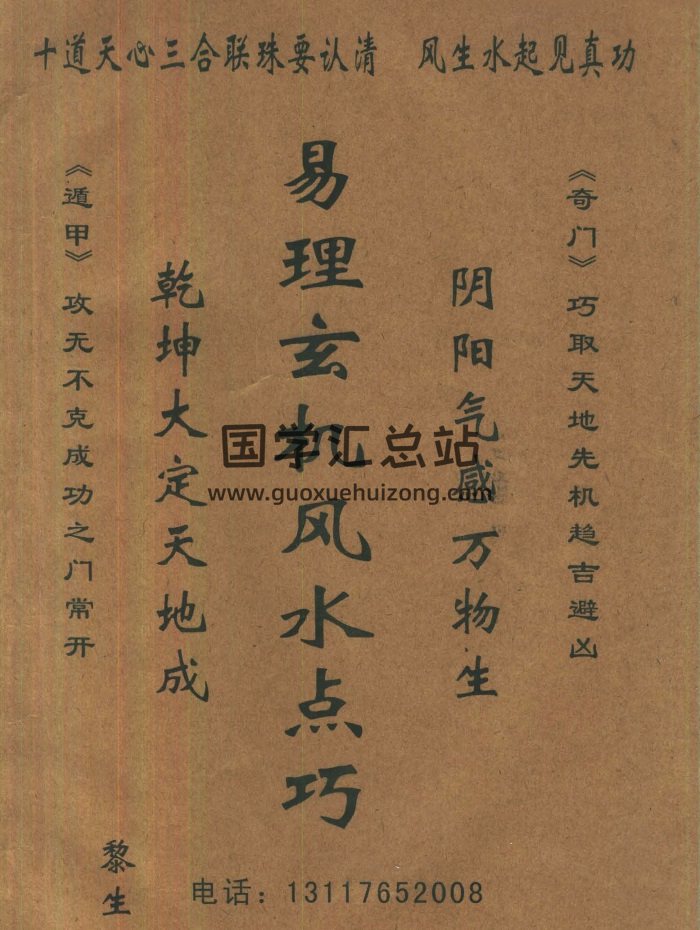 十道天心三合联珠要认清 风生水起见真功
《奇门》巧取天地先机趋吉避凶
阴阳气感万物生
易理玄机风水点巧
乾坤大定天地成
《遁甲》攻无不克成功之门常开
黎生
电话：13117652008
国学汇总站
www.guoxuehuizong.com